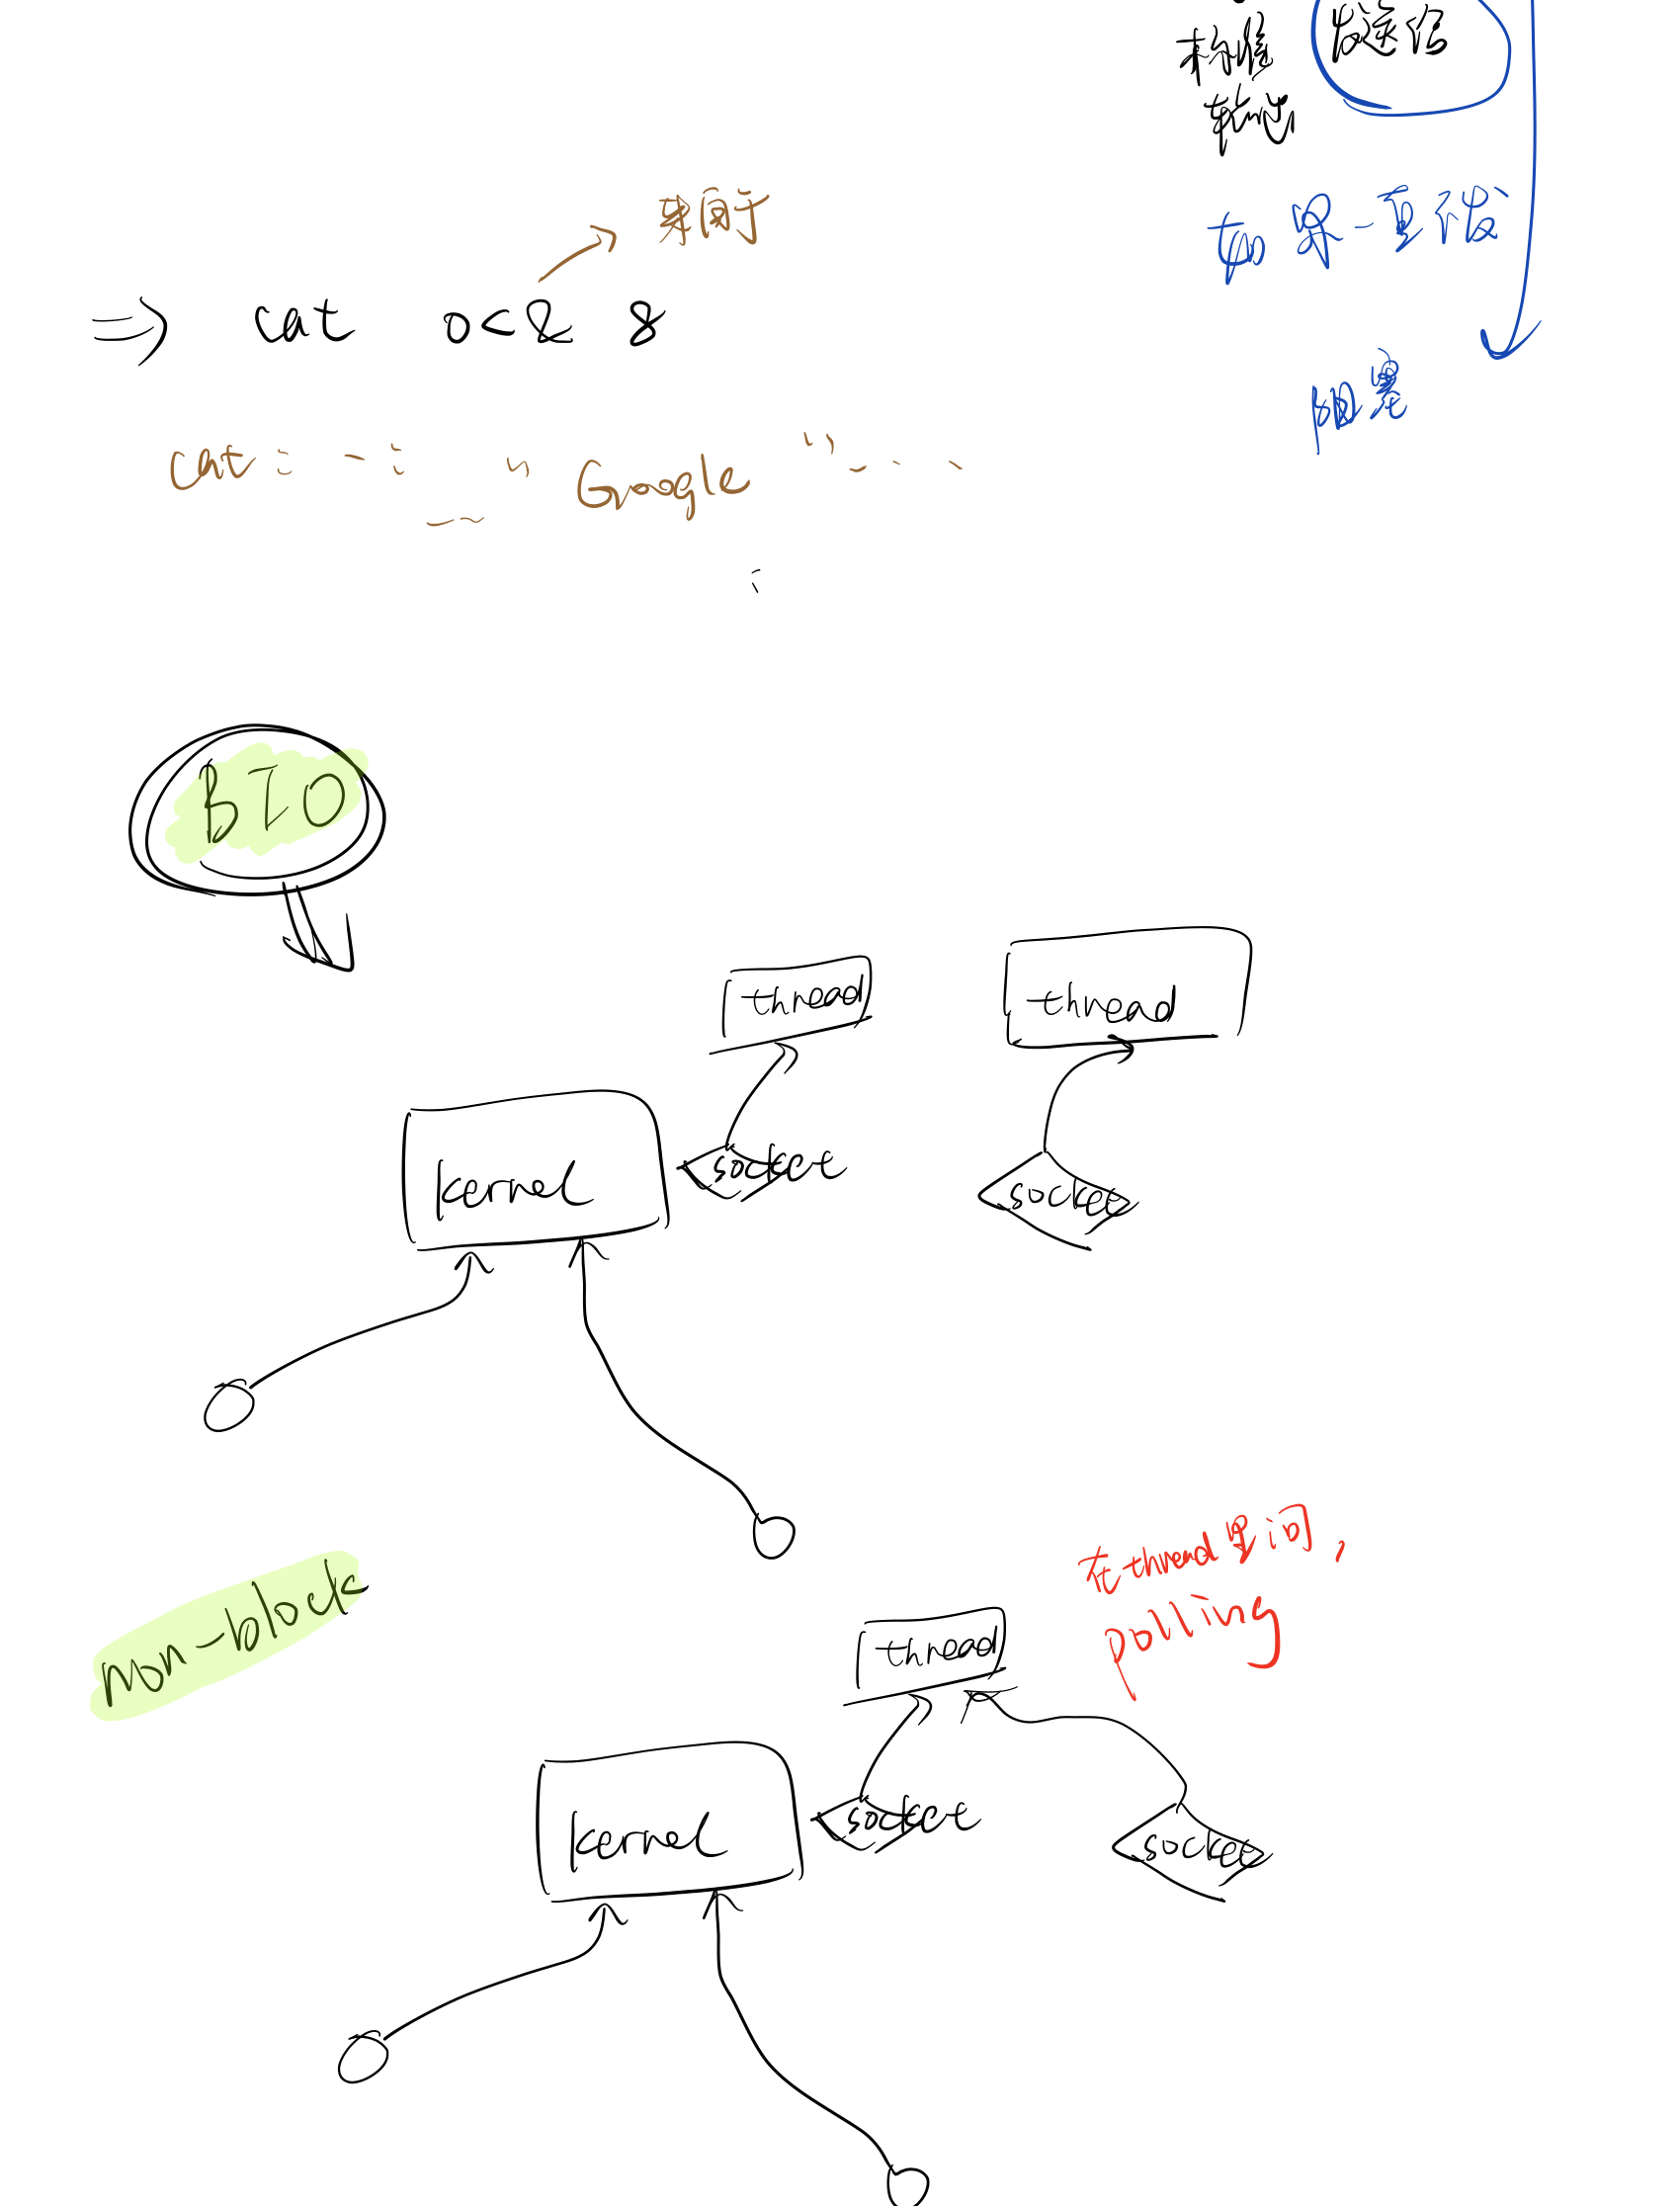 标准
输出
发送给
如果一直没发
阻塞
来间于
=> cat 0<& 8
cat: -: "Google"...
BIO
thread
thread
kernel
socket
socket
non-block
在thread里问,
polling
thread
kernel
socket
socket